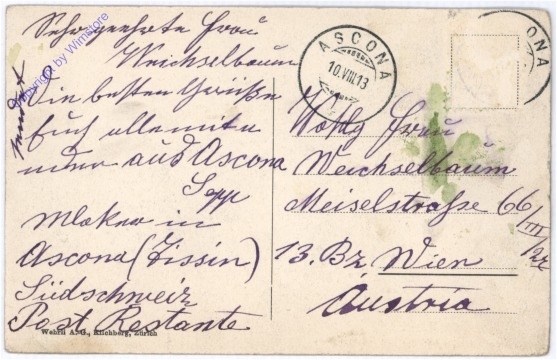 Sehr geehrte Frau
Weichselbaum
Die besten Grüße
Euch alle mite
nander aus Ascona
Sepp
Mlaker in
Ascona (Tissin)
Südschweiz
Post Restante
Wehrli A.-G., Kilchberg, Zürich
Copyright by Wimstore
ASCONA
10.VIII.13
ONA
Frau
Weichselbaum
Meiselstraße 66
III/22
13. Bz. Wien
Austria